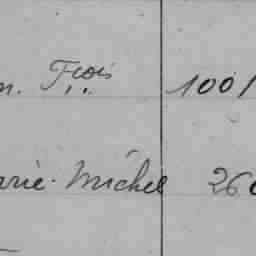 n. Fçois 100/
arie. Michel 260